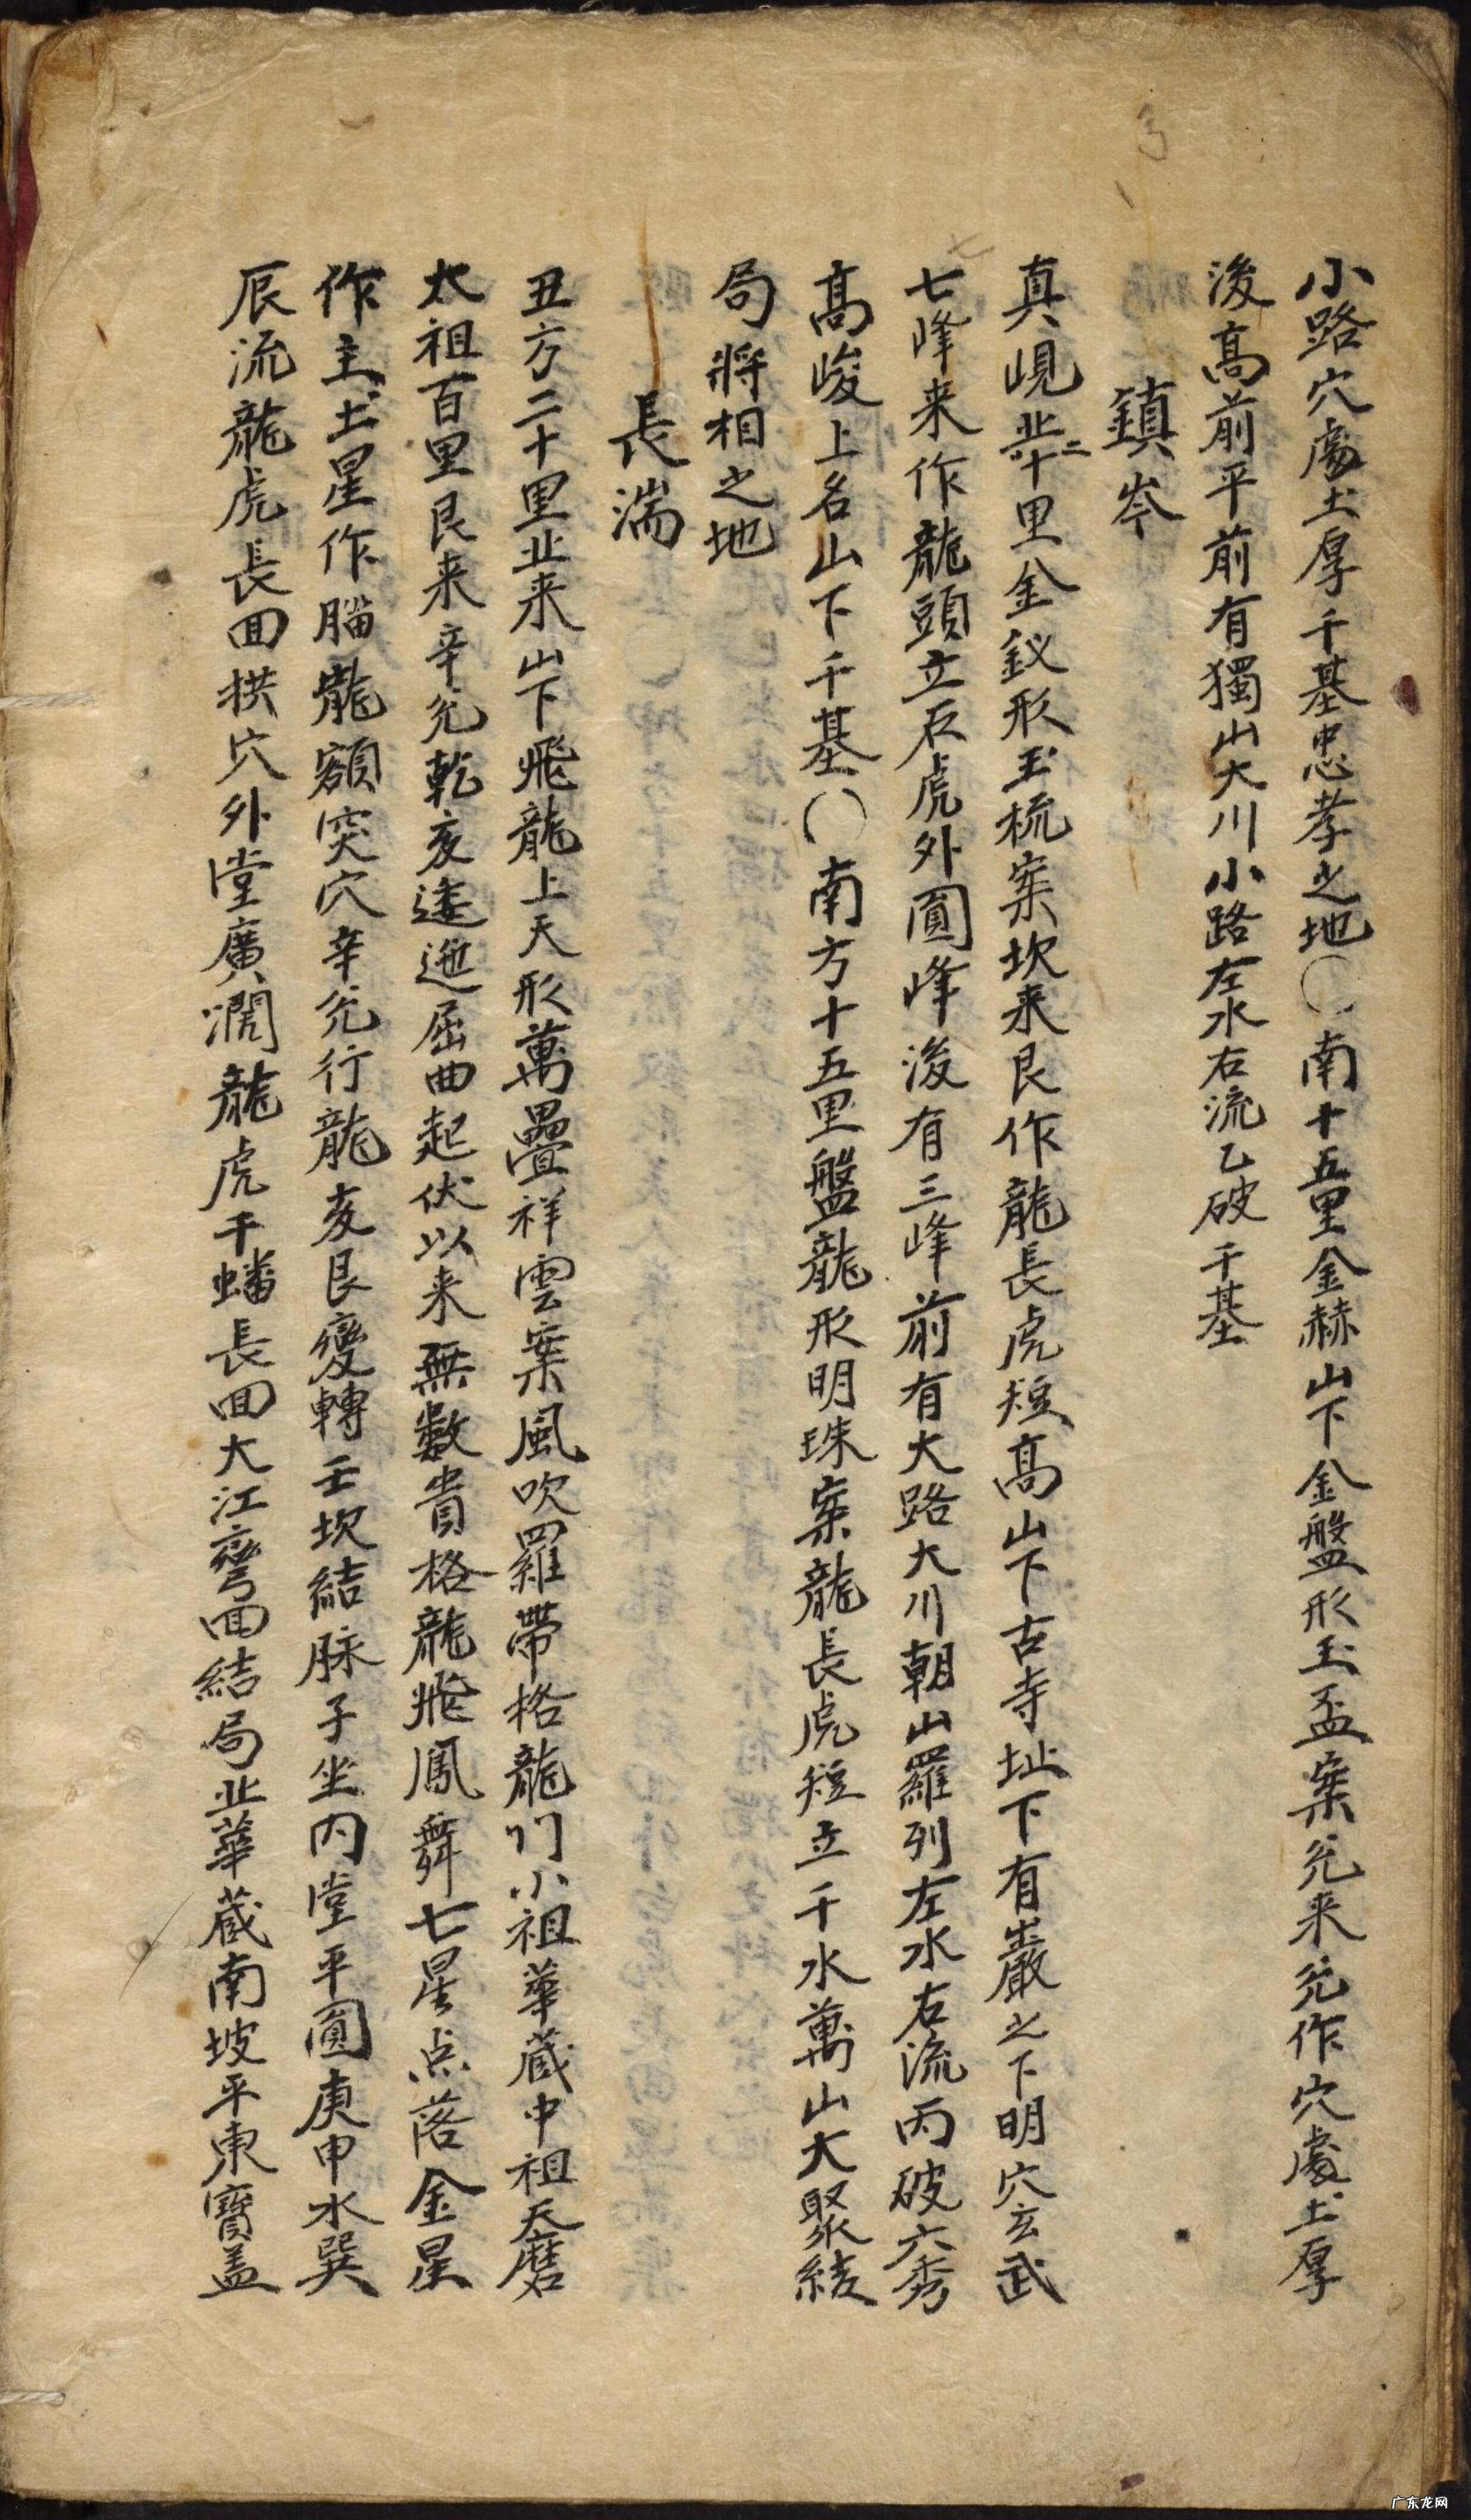 小路穴處土厚千基忠孝之地〇南十五里金赫山下金盤形玉盃案兌来兌作穴處土厚
後髙前平前有獨山大川小路左水右流乙破千基
鎮岑
真峴北二十里金釵形玉梳案坎来艮作龍長虎短高山下古寺址下有巖之下明穴玄武
七峰来作龍頭立石虎外圓峰後有三峰前有大路大川朝山羅列左水右流丙破六秀
髙峻上名山下千基〇南方十五里盤龍形明珠案龍長虎短立千水萬山大聚結
局將相之地
長湍
丑方二十里北来山下飛龍上天形萬疊祥雲案風吹羅帶格龍门小祖華蔵中祖天磨
太祖百里艮来辛兌乾亥逶迤屈曲起伏以来無數貴格龍飛鳳舞七星点落金星
作主土星作腦龍額突穴辛兌行龍亥艮變轉壬坎結脉子坐内堂平圓庚申水巽
辰流龍虎長回拱穴外堂廣濶龍虎千蟠長回大江彎回結局北華蔵南坡平東寶盖
广东龙网